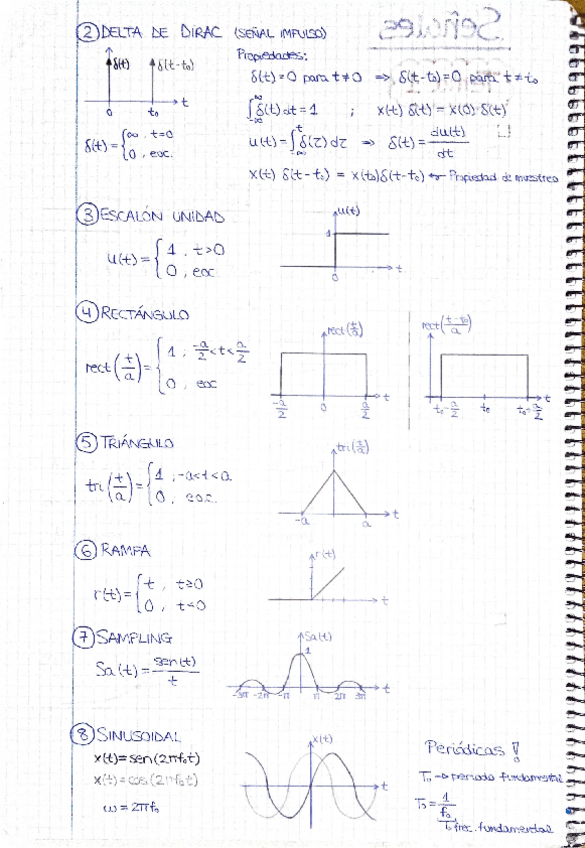 Señales
② DELTA DE DIRAC (SEÑAL IMPULSO)
δ(t)
δ(t-t₀)
0 t₀ t
δ(t) = { ∞, t=0
0, eoc.
Propiedades:
δ(t)=0 para t≠0 ⇒ δ(t-t₀)=0 para t≠t₀
∫_{-∞}^{∞} δ(t) dt = 1 ; x(t) δ(t) = x(0)·δ(t)
u(t) = ∫_{-∞}^{t} δ(τ) dτ ⇒ δ(t) = du(t)/dt
x(t) δ(t-t₀) = x(t₀)δ(t-t₀) ← Propiedad de muestreo
③ ESCALÓN UNIDAD
u(t) = { 1, t>0
0, eoc
u(t)
1
0 t
④ RECTÁNGULO
rect(t/a) = { 1; -a/2<t<a/2
0, eoc
rect(t/a)
-a/2 0 a/2 t
rect((t-t₀)/a)
t₀-a/2 t₀ t₀+a/2 t
⑤ TRIÁNGULO
tri(t/a) = { 1; -a<t<a
0, eoc.
tri(t/a)
-a a t
⑥ RAMPA
r(t) = { t, t≥0
0, t<0
r(t)
t
⑦ SAMPLING
Sa(t) = sen(t)/t
Sa(t)
1
-3π -2π -π π 2π 3π t
⑧ SINUSOIDAL
x(t)=sen(2πf₀t)
x(t)=cos(2πf₀t)
ω=2πf₀
x(t)
t
Periódicas !
T₀ → periodo fundamental
T₀ = 1/f₀
↳ frec. fundamental